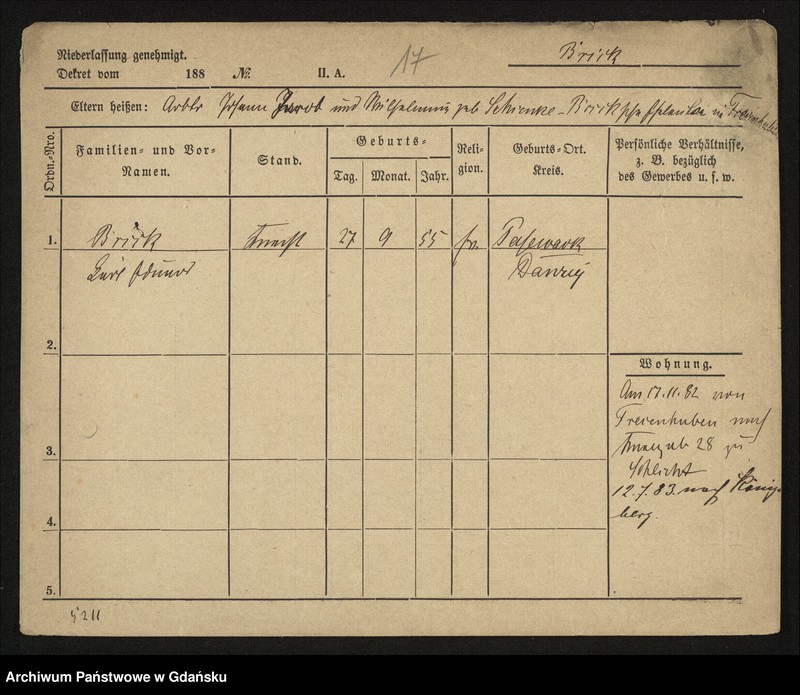 Niederlassung genehmigt.
17
Brück
Dekret vom 188 No. II. A.
Eltern heißen: Arbtr Johann Jacob und Wilhelmine geb Schienke - Brück'sche Eheleute in Freienhuben
Ordn.-Nro.
Familien- und Vor-Namen.
Stand.
Geburts-
Tag. Monat. Jahr.
Religion.
Geburts-Ort.
Kreis.
Persönliche Verhältnisse,
z. B. bezüglich
des Gewerbes u. s. w.
1. Brück Knecht 27 9 55 ev. Pasewark
Carl Eduard Danzig
2.
Wohnung.
Am 17.11.82 von
Freienhuben nach
28 zu
Schlicht
3.
12.7.83. nach Königs-
berg.
4.
5.
5211
Archiwum Państwowe w Gdańsku